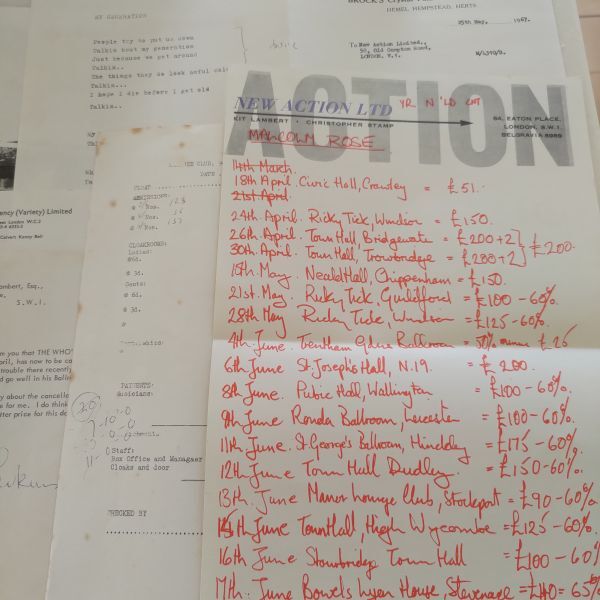 MY GENERATION
People try to put us down
Talkin bout my generation
Just because we get around
Talkin..
The things they do look awful col
Talkin...
I hope I die before I get old
Talkin..
HEMEL HEMPSTEAD, HERTS
25th May, 1967.
To New Action Limited,
50, Old Compton Road,
LONDON, W.1.
ACTION
NEW ACTION LTD
KIT LAMBERT • CHRISTOPHER STAMP
84, EATON PLACE,
LONDON, S.W.1.
BELGRAVIA 8989
MALCOLM ROSE
14th March.
18th April. Civic Hall, Crawley = £51.
21st April.
24th April. Ricky Tick, Windsor = £150.
26th April. Town Hall, Bridgwater = £200+2
30th April. Town Hall, Trowbridge = £200+2
£200.
15th May. Neald Hall, Chippenham = £150.
21st May. Ricky Tick, Guildford = £100 - 60%
28th May Ricky Tick, Windsor = £125 - 60%.
4th June. Trentham Gdns Ballroom = 50%
6th June St. Josephs Hall, N.19. = £200.
8th June. Public Hall, Wallington = £100 - 60%.
9th June Ronda Ballroom, Leicester = £100 - 60%.
11th June. St. George's Ballroom, Hinckley = £175 - 60%.
12th June Town Hall Dudley. = £150 - 60%.
13th June Manor Lounge Club, Stockport = £90 - 60%
15th June Town Hall, High Wycombe = £125 - 60%.
16th June Stourbridge Town Hall = £100 - 60%
17th June Bowes Lyon House, Stevenage = £140 = 65%
DATE
FLOAT
ADMISSIONS:
Nos. 128
Nos.
Nos.
CLOAKROOMS:
Ladies:
@6d.
@ 3d.
Gents:
@ 6d.
@ 3d.
PAYMENTS:
Musicians:
Staff:
Box Office and Manager
Cloaks and door
CHECKED BY
ency (Variety) Limited
ambert, Esq.,
S.W.1.
you that THE WHO'
pril, has now to be ca
trouble there recently
d go well in his Ballr
y about the cancella
e for me. I do think
tter prize for this da